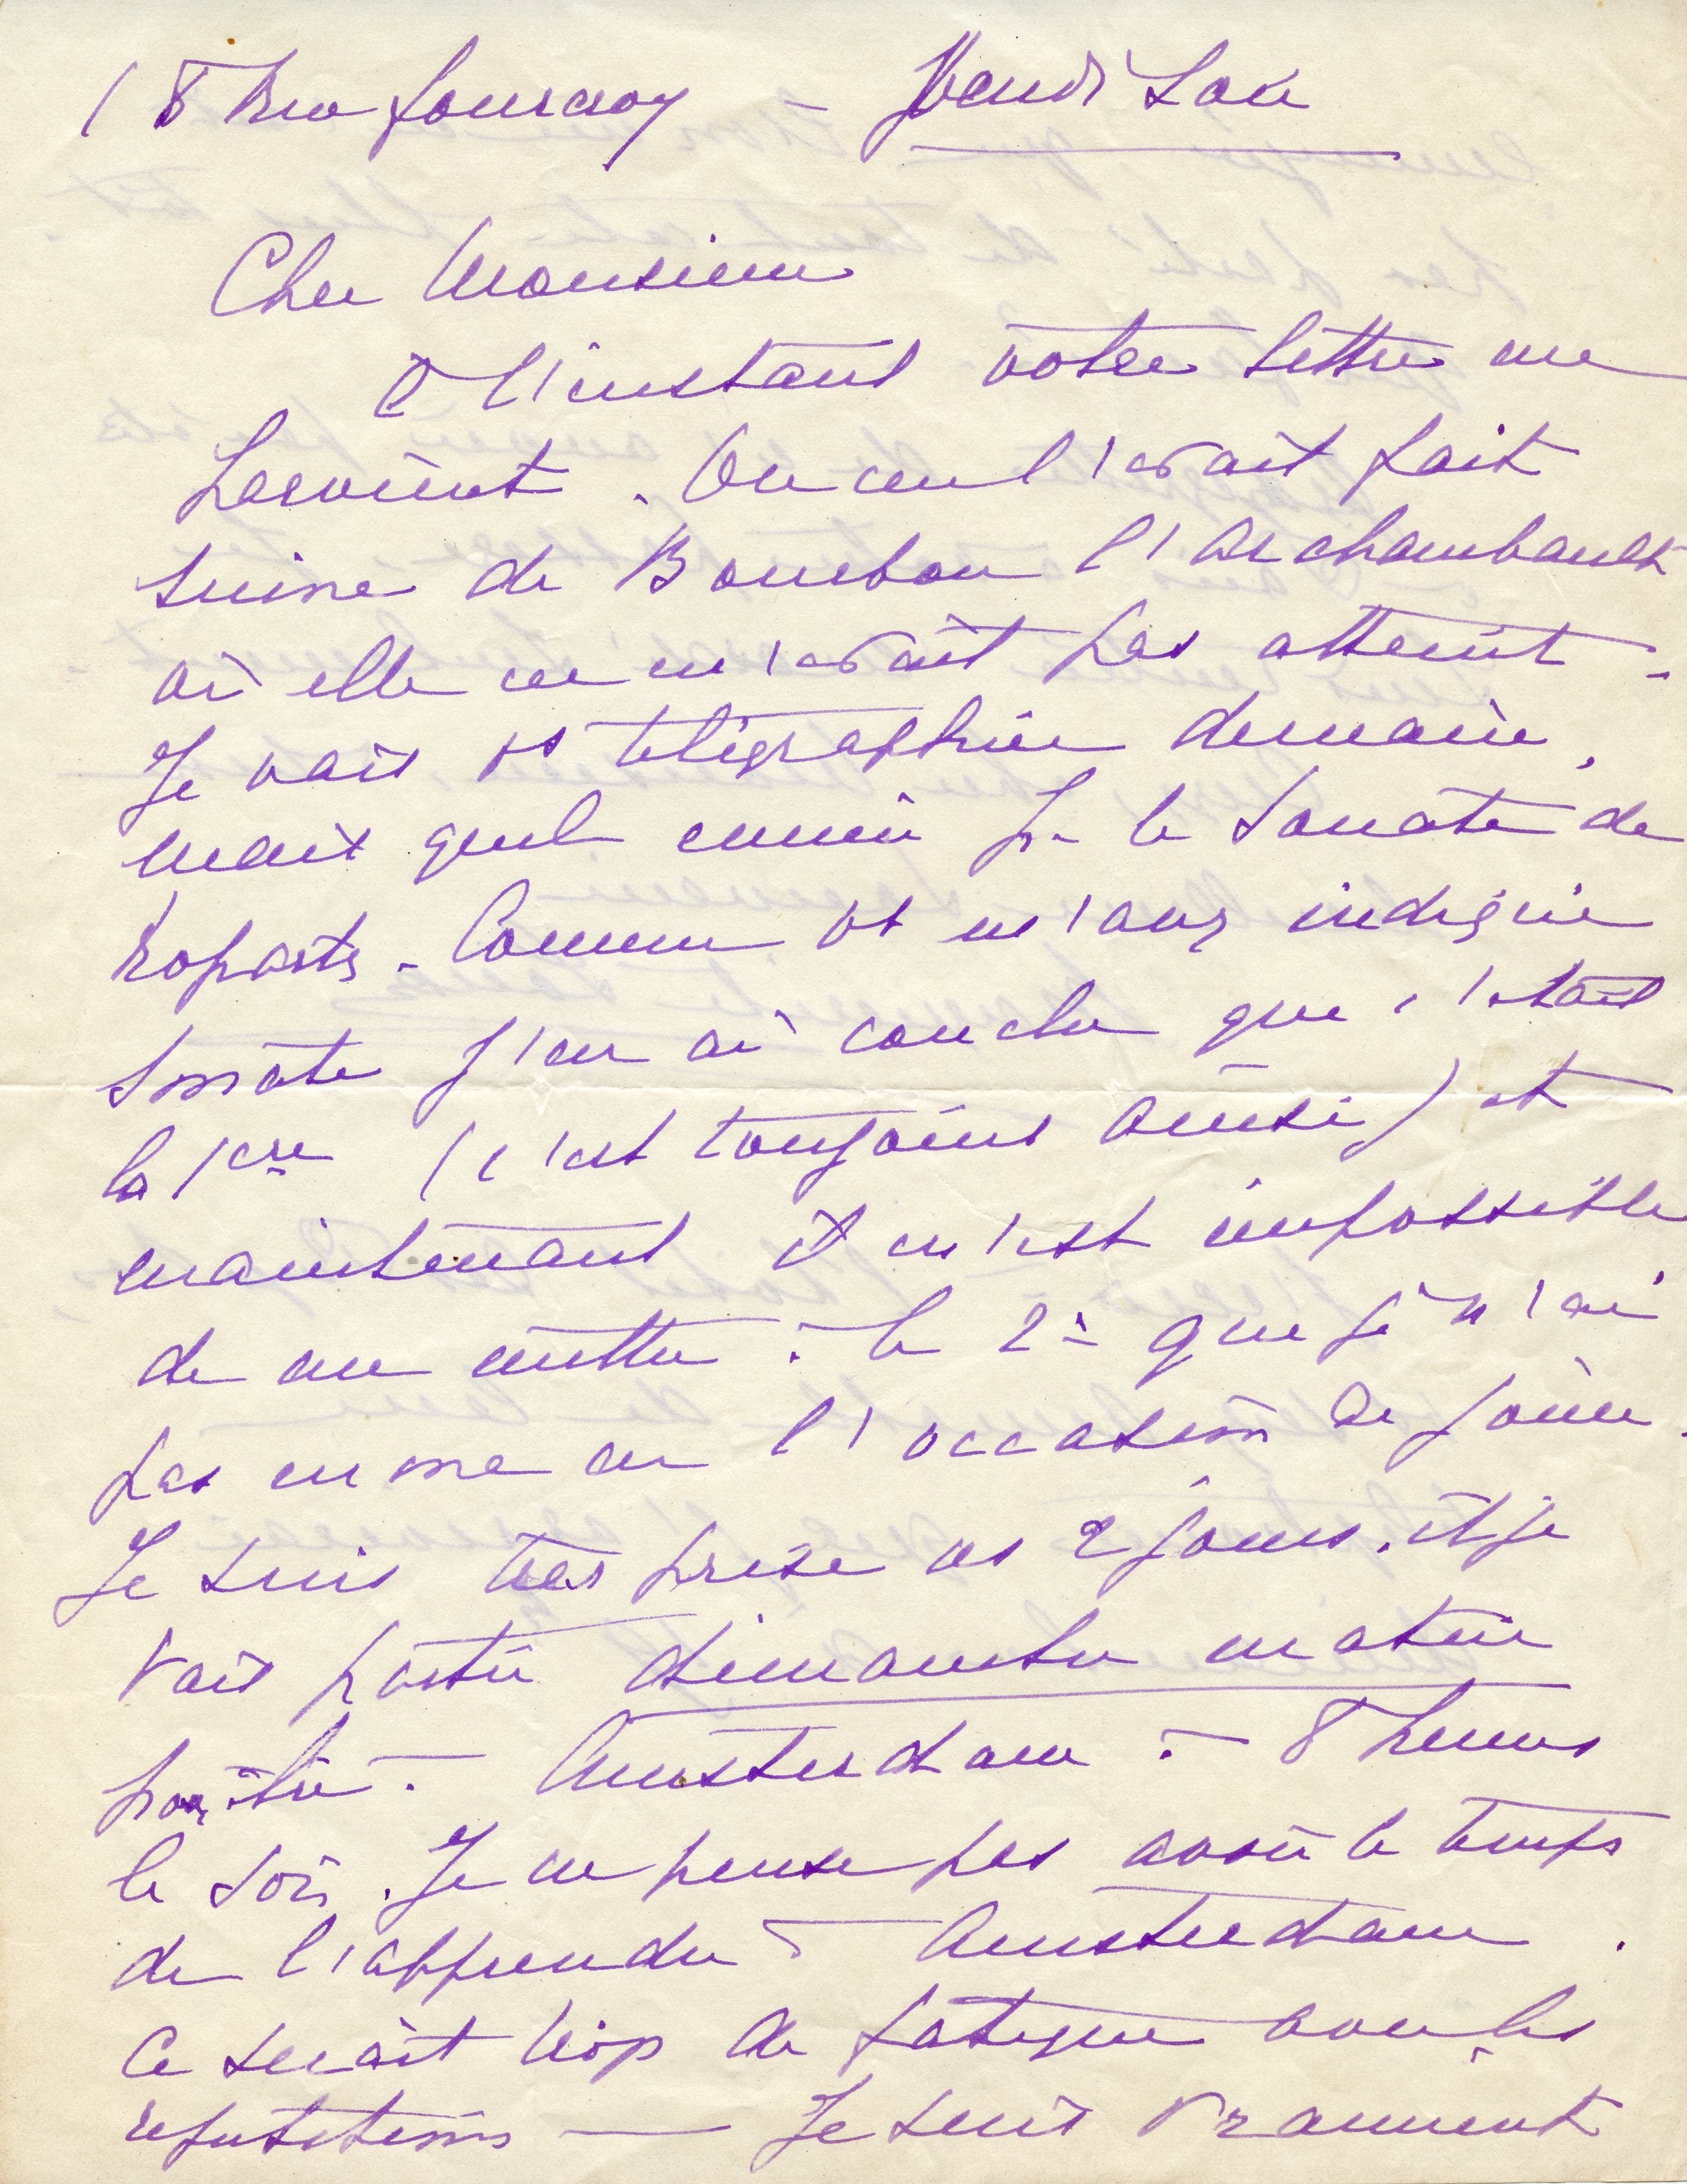 18 Rue Fourcroy — Jeudi Soir
Cher Monsieur
à l'instant votre lettre me
parvient. On me l'avait fait
suivre de Bourbon l'Archambault
où elle ne m'avait pas atteint.
Je vais vs télégraphier demain.
mais quel ennui pr la Sonate de
Ropartz. Comme vs m'avez indiqué
Sonate j'en ai conclu que c'était
la 1ere (c'est toujours ainsi) et
maintenant il m'est impossible
de me mettre à la 2e que je n'ai
pas encore eu l'occasion de jouer.
Je suis très prise ces 2 jours. et je
vais partir dimanche matin
pour être à Amsterdam à 8 heures
le soir. Je ne pense pas avoir le temps
de l'apprendre à Amsterdam.
Ce serait trop de fatigue avec les
répétitions — Je suis vraiment